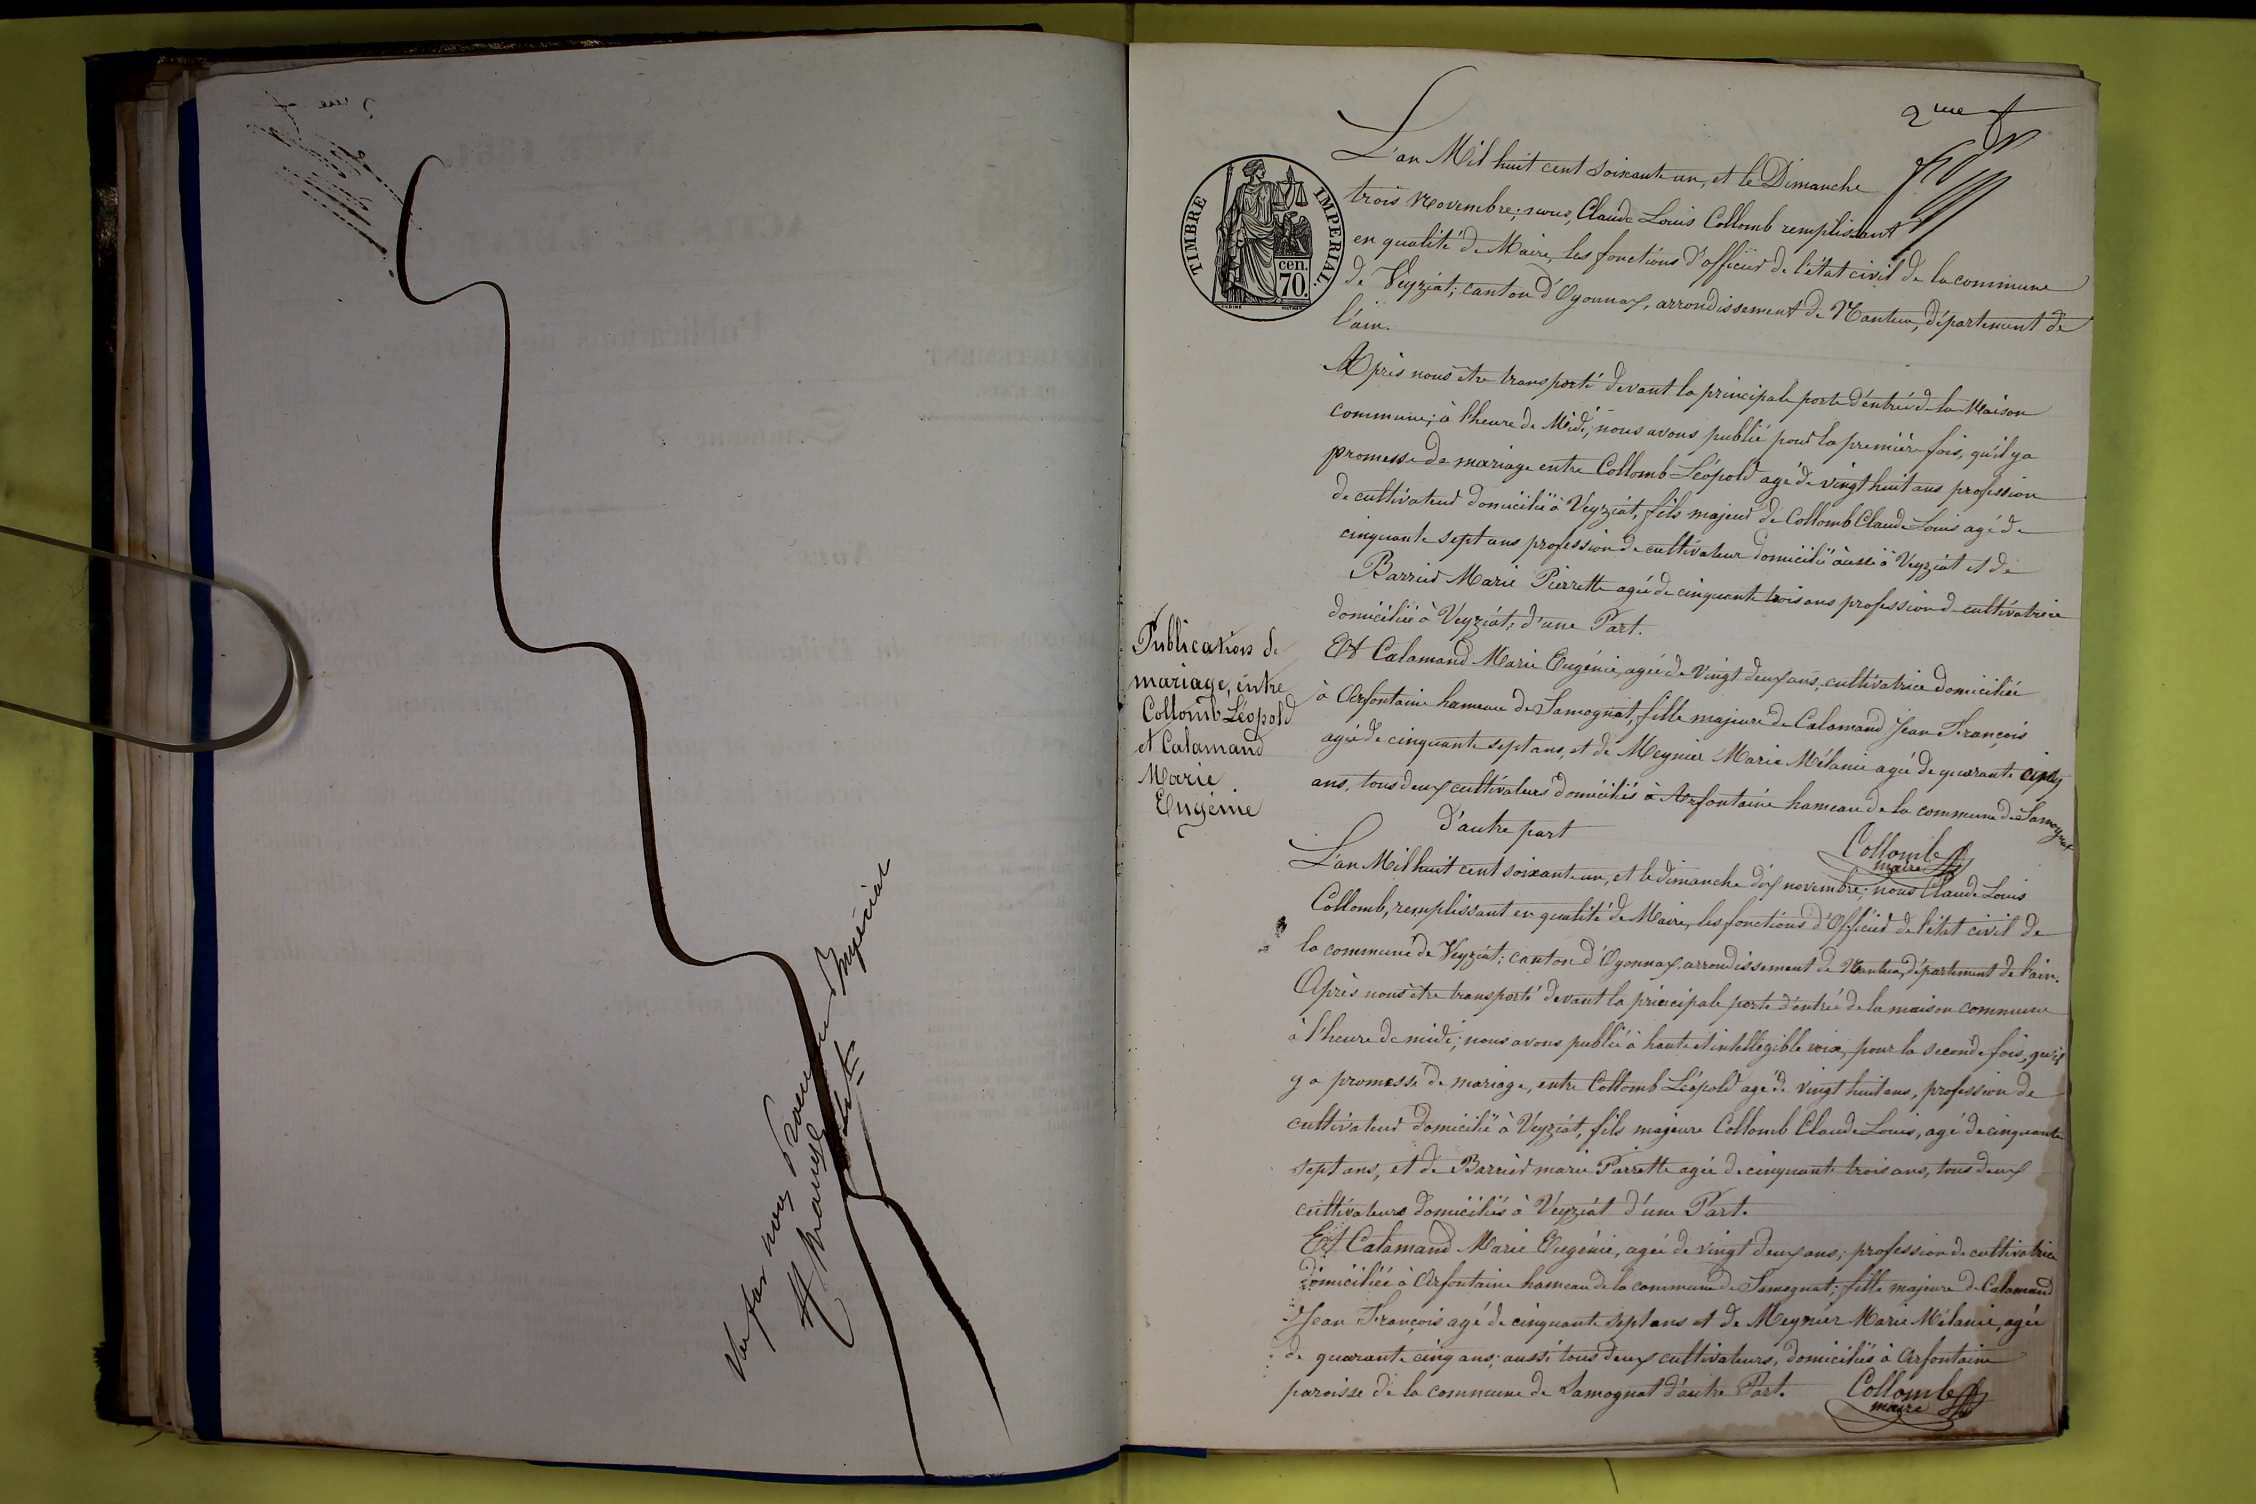 Vu par nous Procureur Impérial
2me f
TIMBRE IMPERIAL.
cen.
70.
L'an Mil huit cent soixante un, et le Dimanche
trois Novembre; nous, Claude Louis Collomb remplissant
en qualité de Maire, les fonctions d'officier de l'état civil de la commune
de Veyziat; canton d'Oyonnax, arrondissement de Nantua, département de
l'ain.
Après nous être transporté devant la principale porte d'entrée de la Maison
commune; à l'heure de Midi; nous avons publié pour la première fois, qu'il y a
promesse de mariage entre Collomb Léopold agé de vingt huit ans profession
de cultivateur domicilié à Veyziat, fils majeur de Collomb Claude Louis agé de
cinquante sept ans profession de cultivateur domicilié aussi à Veyziat et de
Barrier Marie Pierrette agée de cinquante trois ans profession de cultivatrice
domiciliée à Veyziat; d'une Part.
Et Calamand Marie Eugénie, agée de vingt deux ans, cultivatrice domiciliée
à Arfontaine hameau de Samognat, fille majeure de Calamand Jean François
agé de cinquante sept ans, et de Meynier Marie Mélanie agée de quarante cinq
ans, tous deux cultivateurs domiciliés à Arfontaine hameau de la commune de Samognat
d'autre part
Collomb
maire
Publication de
mariage, entre
Collomb Léopold
et Calamand
Marie
Eugénie
L'an Mil huit cent soixante un, et le dimanche dix novembre; nous Claude Louis
Collomb, remplissant en qualité de Maire, les fonctions d'Officier de l'état civil de
la commune de Veyziat; canton d'Oyonnax, arrondissement de Nantua, département de l'ain.
Après nous être transporté devant la principale porte d'entrée de la maison commune
à l'heure de midi; nous avons publié à haute et intelligible voix, pour la seconde fois, qu'il
y a promesse de mariage, entre Collomb Léopold agé de vingt huit ans, profession de
cultivateur domicilié à Veyziat, fils majeure Collomb Claude Louis, agé de cinquante
sept ans, et de Barrier marie Pierrette agée de cinquante trois ans, tous deux
cultivateurs domiciliés à Veyziat d'une Part.
Et Calamand Marie Eugénie, agée de vingt deux ans; profession de cultivatrice
domiciliée à Arfontaine hameau de la commune de Samognat; fille majeure de Calamand
Jean François agé de cinquante sept ans et de Meynier Marie Mélanie, agée
de quarante cinq ans; aussi tous deux cultivateurs, domiciliés à Arfontaine
paroisse de la commune de Samognat d'autre Part.
Collomb
maire